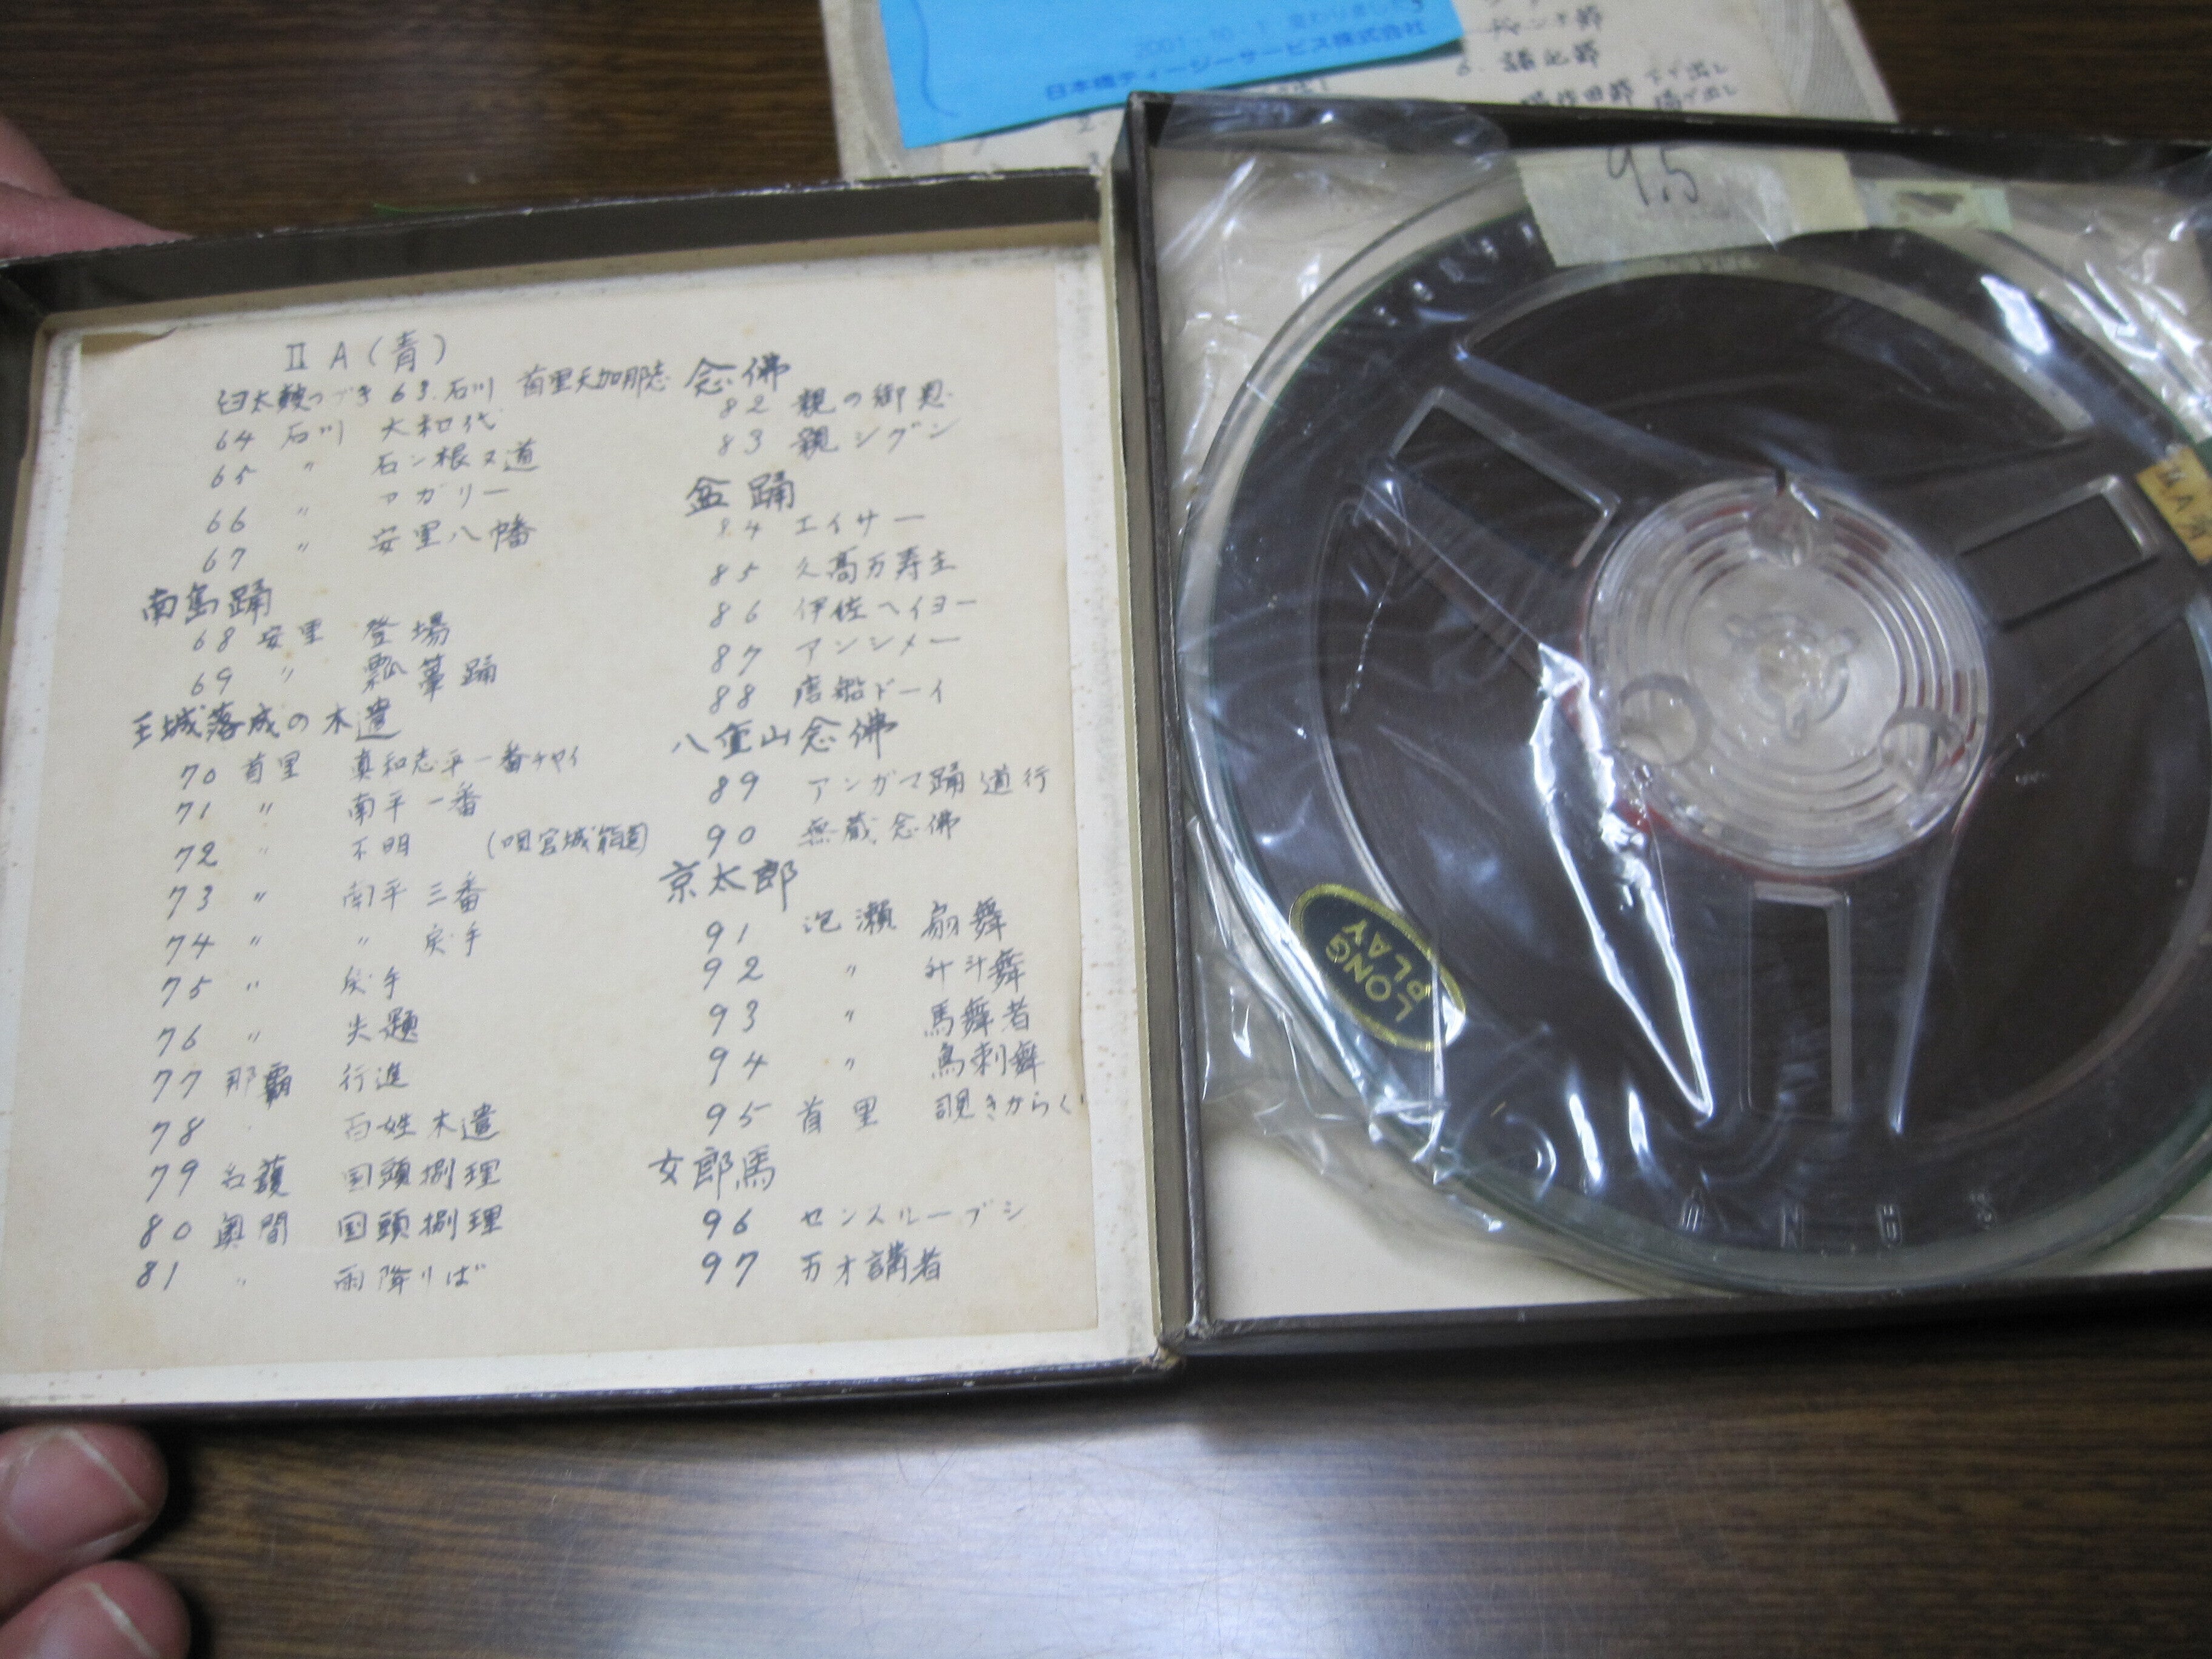 II A (青)
臼太鼓つづき 63. 石川 首里天加那志
64 石川 大和代
65 〃 石ン根ヌ道
66 〃 アガリー
67 〃 安里八幡
南島踊
68 安里 登場
69 〃 瓢箪踊
王城落成の木遣
70 首里 真和志平一番チヤイ
71 〃 南平一番
72 〃 不明 (唄宮城
73 〃 南平 三番
74 〃 〃 戻手
75 〃 戻手
76 〃 失題
77 那覇 行進
78 百姓木遣
79 名護 国頭捌理
80 奥間 国頭捌理
81 〃 雨降りば
念佛
82 親の御恩
83 親シグン
盆踊
84 エイサー
85 久高万寿主
86 伊佐ヘイヨー
87 アンシメー
88 唐船ドーイ
八重山念佛
89 アンガマ踊道行
90 無蔵念佛
京太郎
91 泡瀬 扇舞
92 〃 舞
93 〃 馬舞者
94 〃 鳥刺舞
95 首里 覗きからくり
女郎馬
96 センスルーブシ
97 万才講者
9.5
LONG PLAY
2001・10・1 変わりました
日本橋ティージーサービス株式会社